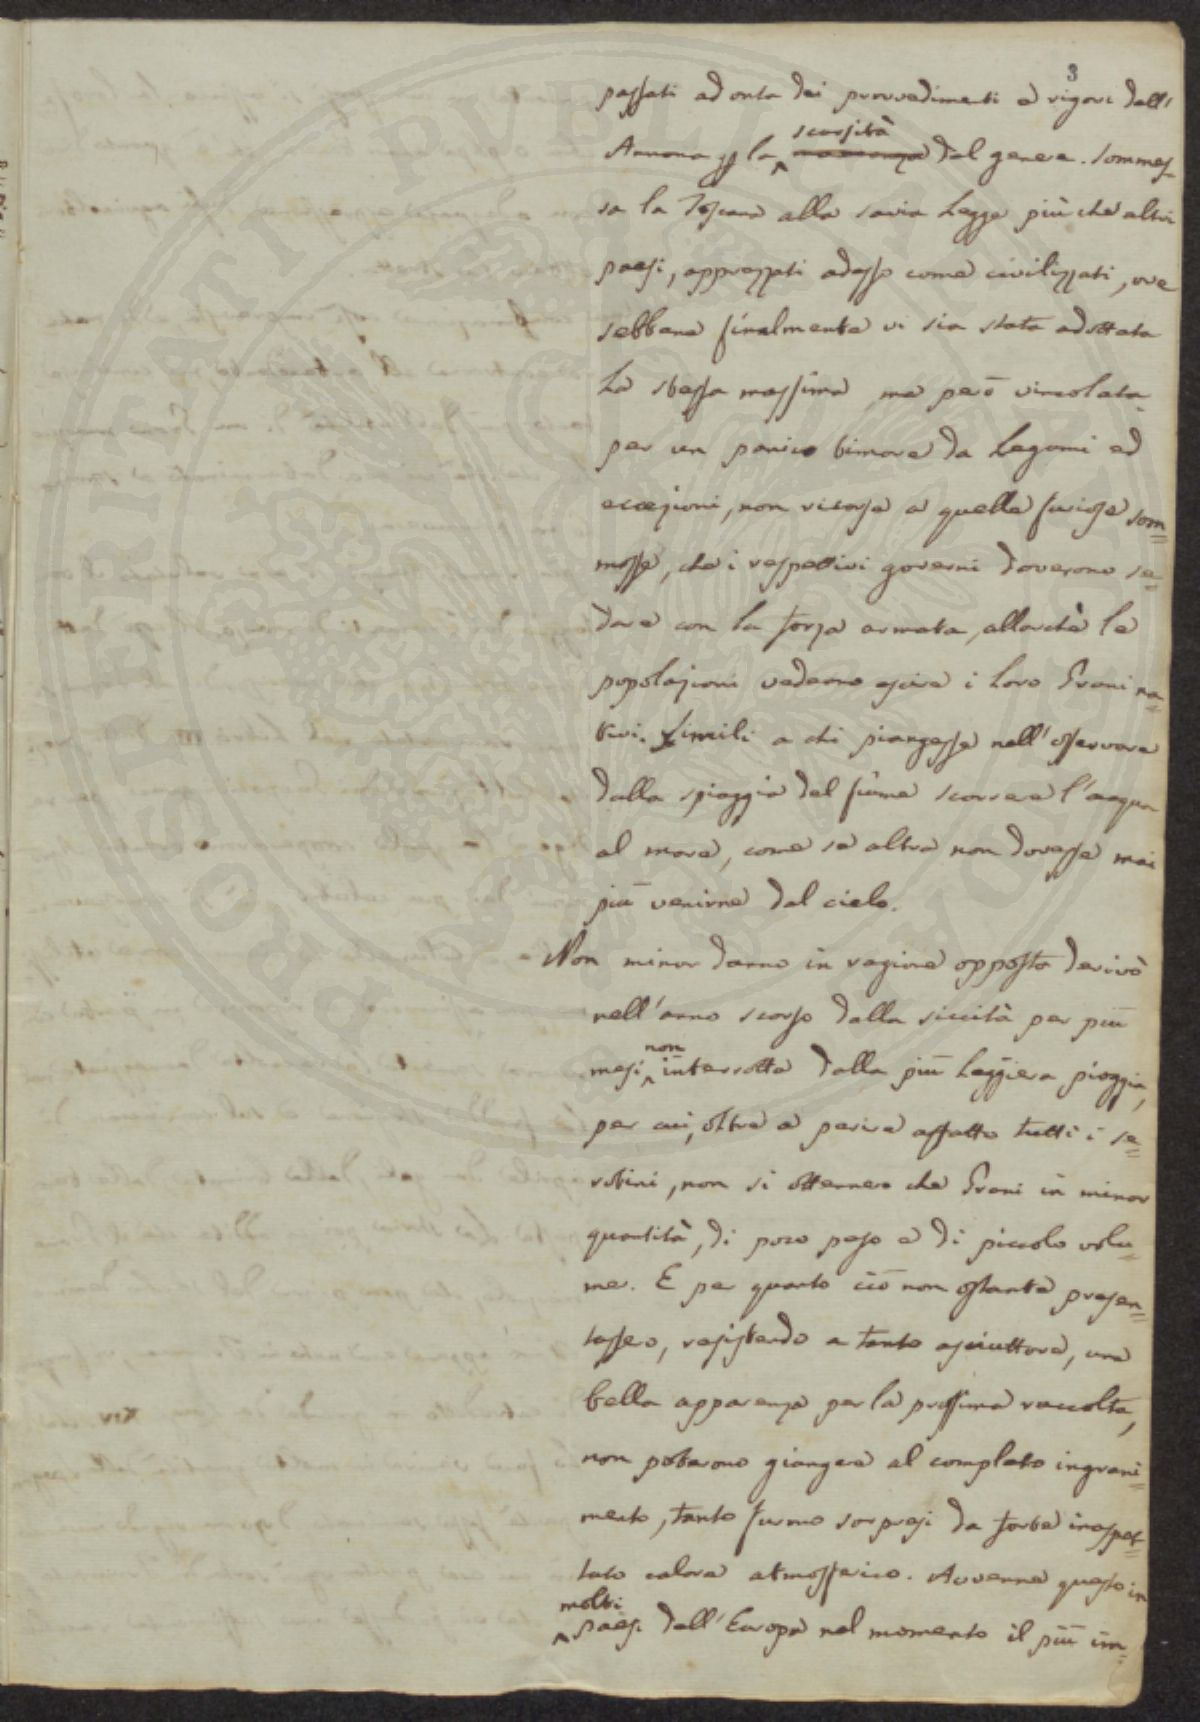 3
passati ad onta dei provvedimenti e rigori dell'
Annona p la scarsità del genere. Sommes-
sa la Toscana alla savia Legge più che altri
paesi, apprezzati adesso come civilizzati, ove
sebbene finalmente vi sia stata adottata
la stessa massima, ma però vincolata
per un panico timore da legami ed
eccezioni, non vicorse a quelle furiose som=
mosse, che i respettivi governi doverono se=
dare con la forza armata, allorchè le
popolazioni vederno escire i loro Grani na=
tivi. Simili a chi piangesse nell'osservare
dalla spiaggia del fiume scorrere l'acqua
al mare, come se altra non dovesse mai
più venirne dal cielo.
Non minor danno in ragione opposta derivò
nell'anno scorso dalla siccità per più
mesi non interrotta dalla più leggiera pioggia,
per cui, oltre a perire affatto tutti i se=
rotini, non si ottennero che Grani in minor
quantità, di poco peso e di piccolo volu=
me. E per quanto ciò non ostante presen=
tassero, resistendo a tanto asciuttore, una
bella apparenza per la prossima raccolta,
non poterono giungere al completo ingrani=
mento, tanto furno sorpresi da forte inaspet=
tato calore atmosferico. Avvenne questo in
molti paesi dell'Europa nel momento il più im-